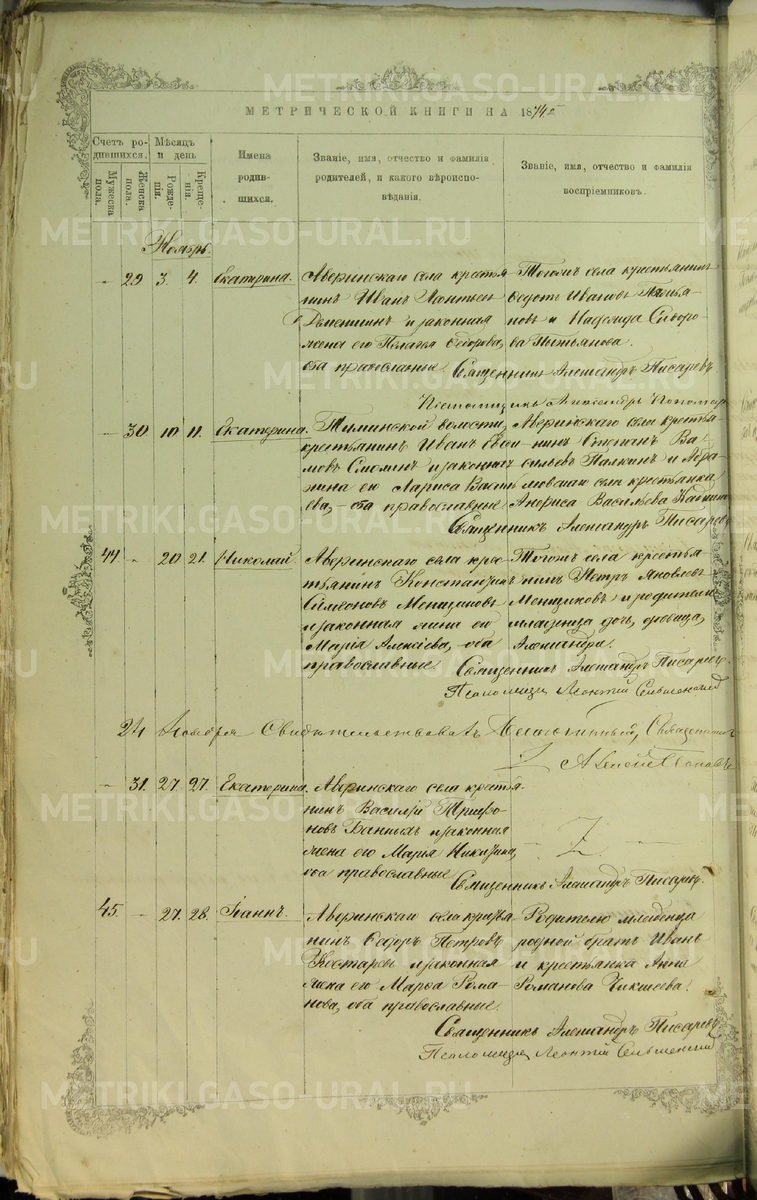 МЕТРИЧЕСКОЙ КНИГИ НА 1874 г
Счетъ ро-
дившихся.
Мужеска
пола.
Женска
пола.
Мѣсяцъ
и день
Рожде-
нія.
Креще-
нія.
Имена
родив-
шихся.
Званіе, имя, отчество и фамилія
родителей, и какого вѣроиспо-
вѣданія.
Званіе, имя, отчество и фамилія
воспріемниковъ.
Ноябрь
- 29 3. 4. Екатерина.
Аверинскаго села кресть-
янинъ Иванъ Леонтьевъ
и законная
жена его Пелагея Ѳедорова,
оба православные
Тогожъ села крестьянинъ
Ѳедотъ Ивановъ
и Надежда
Священникъ Александръ Писаревъ
- 30 10 11. Екатерина.
волости,
крестьянинъ Иванъ
и законная
жена его Лариса Василь-
ева, - оба православные
Аверинскаго села кресть-
янинъ Степанъ Ва-
сильевъ Палкинъ и Авра-
мовскаго села крестьянка
Васильева
Священникъ Александръ Писаревъ
44 - 20 21. Николай
Аверинскаго села кре-
стьянинъ Константинъ
Симеоновъ Менщиковъ
и законная жена его
Марія Алексѣева, оба
православные
Тогожъ села кресть-
янинъ Петръ Яковлевъ
Менщиковъ и родителя
младенца дочь, дѣвица,
Александра.
Священникъ Александръ Писаревъ.
Псаломщикъ Леонтій
24 Ноября Свидѣтельствовалъ Священникъ
Алексѣй Поповъ
- 31. 27 27. Екатерина.
Аверинскаго села кресть-
янинъ Василій Трифо-
новъ Банныхъ и законная
жена его Марія Никитина,
оба православные
Священникъ Александръ Писаревъ.
45. - 27. 28. Іоаннъ.
Аверинскаго села кресть-
янинъ Ѳедоръ Петровъ
Костаревъ и законная
жена его Марѳа Рома-
нова, оба православные.
Родителю младенца
родной братъ Иванъ
и крестьянка Анна
Романова Чикишева.
Священникъ Александръ Писаревъ
Псаломщикъ Леонтій
METRIKI.GASO-URAL.RU